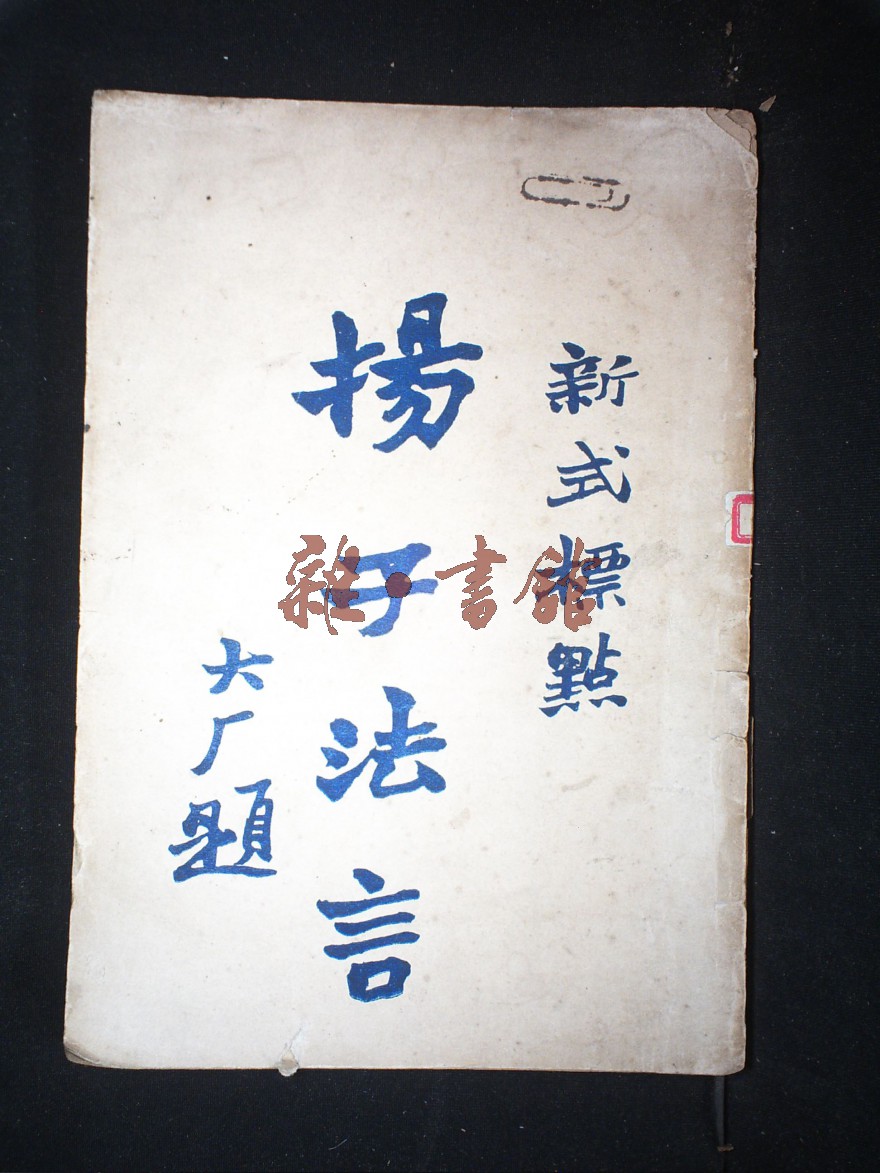 新式標點
揚子法言
大厂題
雜·書館